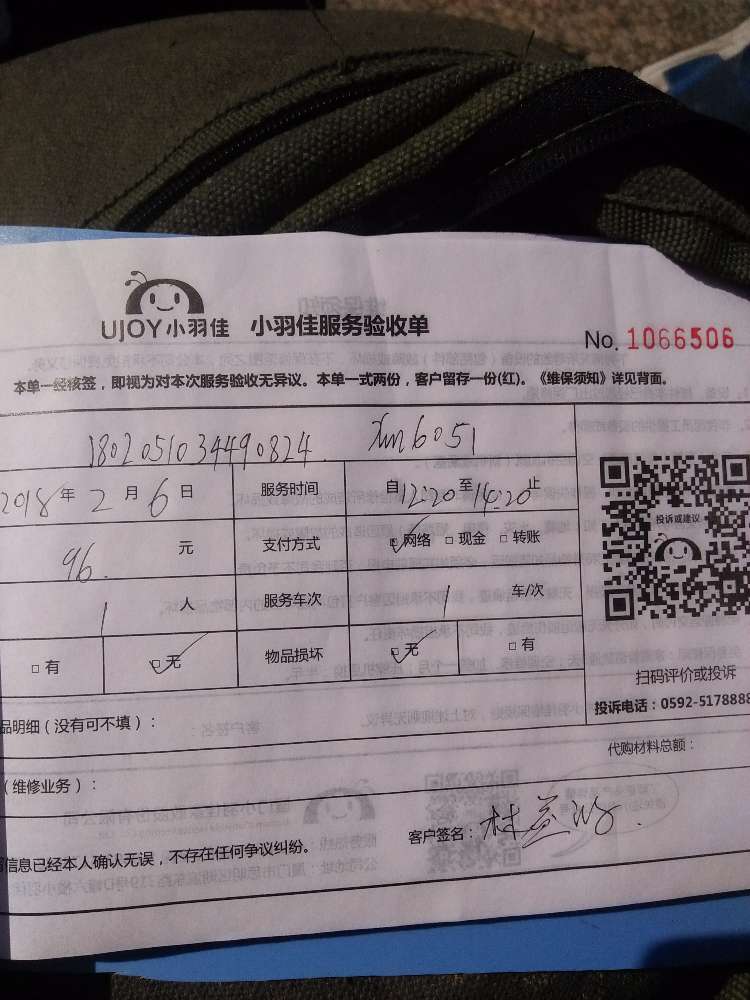 UJOY小羽佳 小羽佳服务验收单
No. 1066506
本单一经核签，即视为对本次服务验收无异议。本单一式两份，客户留存一份(红)。《维保须知》详见背面。
1802051034490824. xm6051
2018年2月6日 服务时间 自12:20至14:20止
96. 元 支付方式 网络 现金 转账
投诉或建议
1 人 服务车次 1 车/次
有 无 物品损坏 无 有
扫码评价或投诉
品明细（没有可不填）：
投诉电话：0592-5178888
代购材料总额：
（维修业务）：
客户签名：林
信息已经本人确认无误，不存在任何争议纠纷。